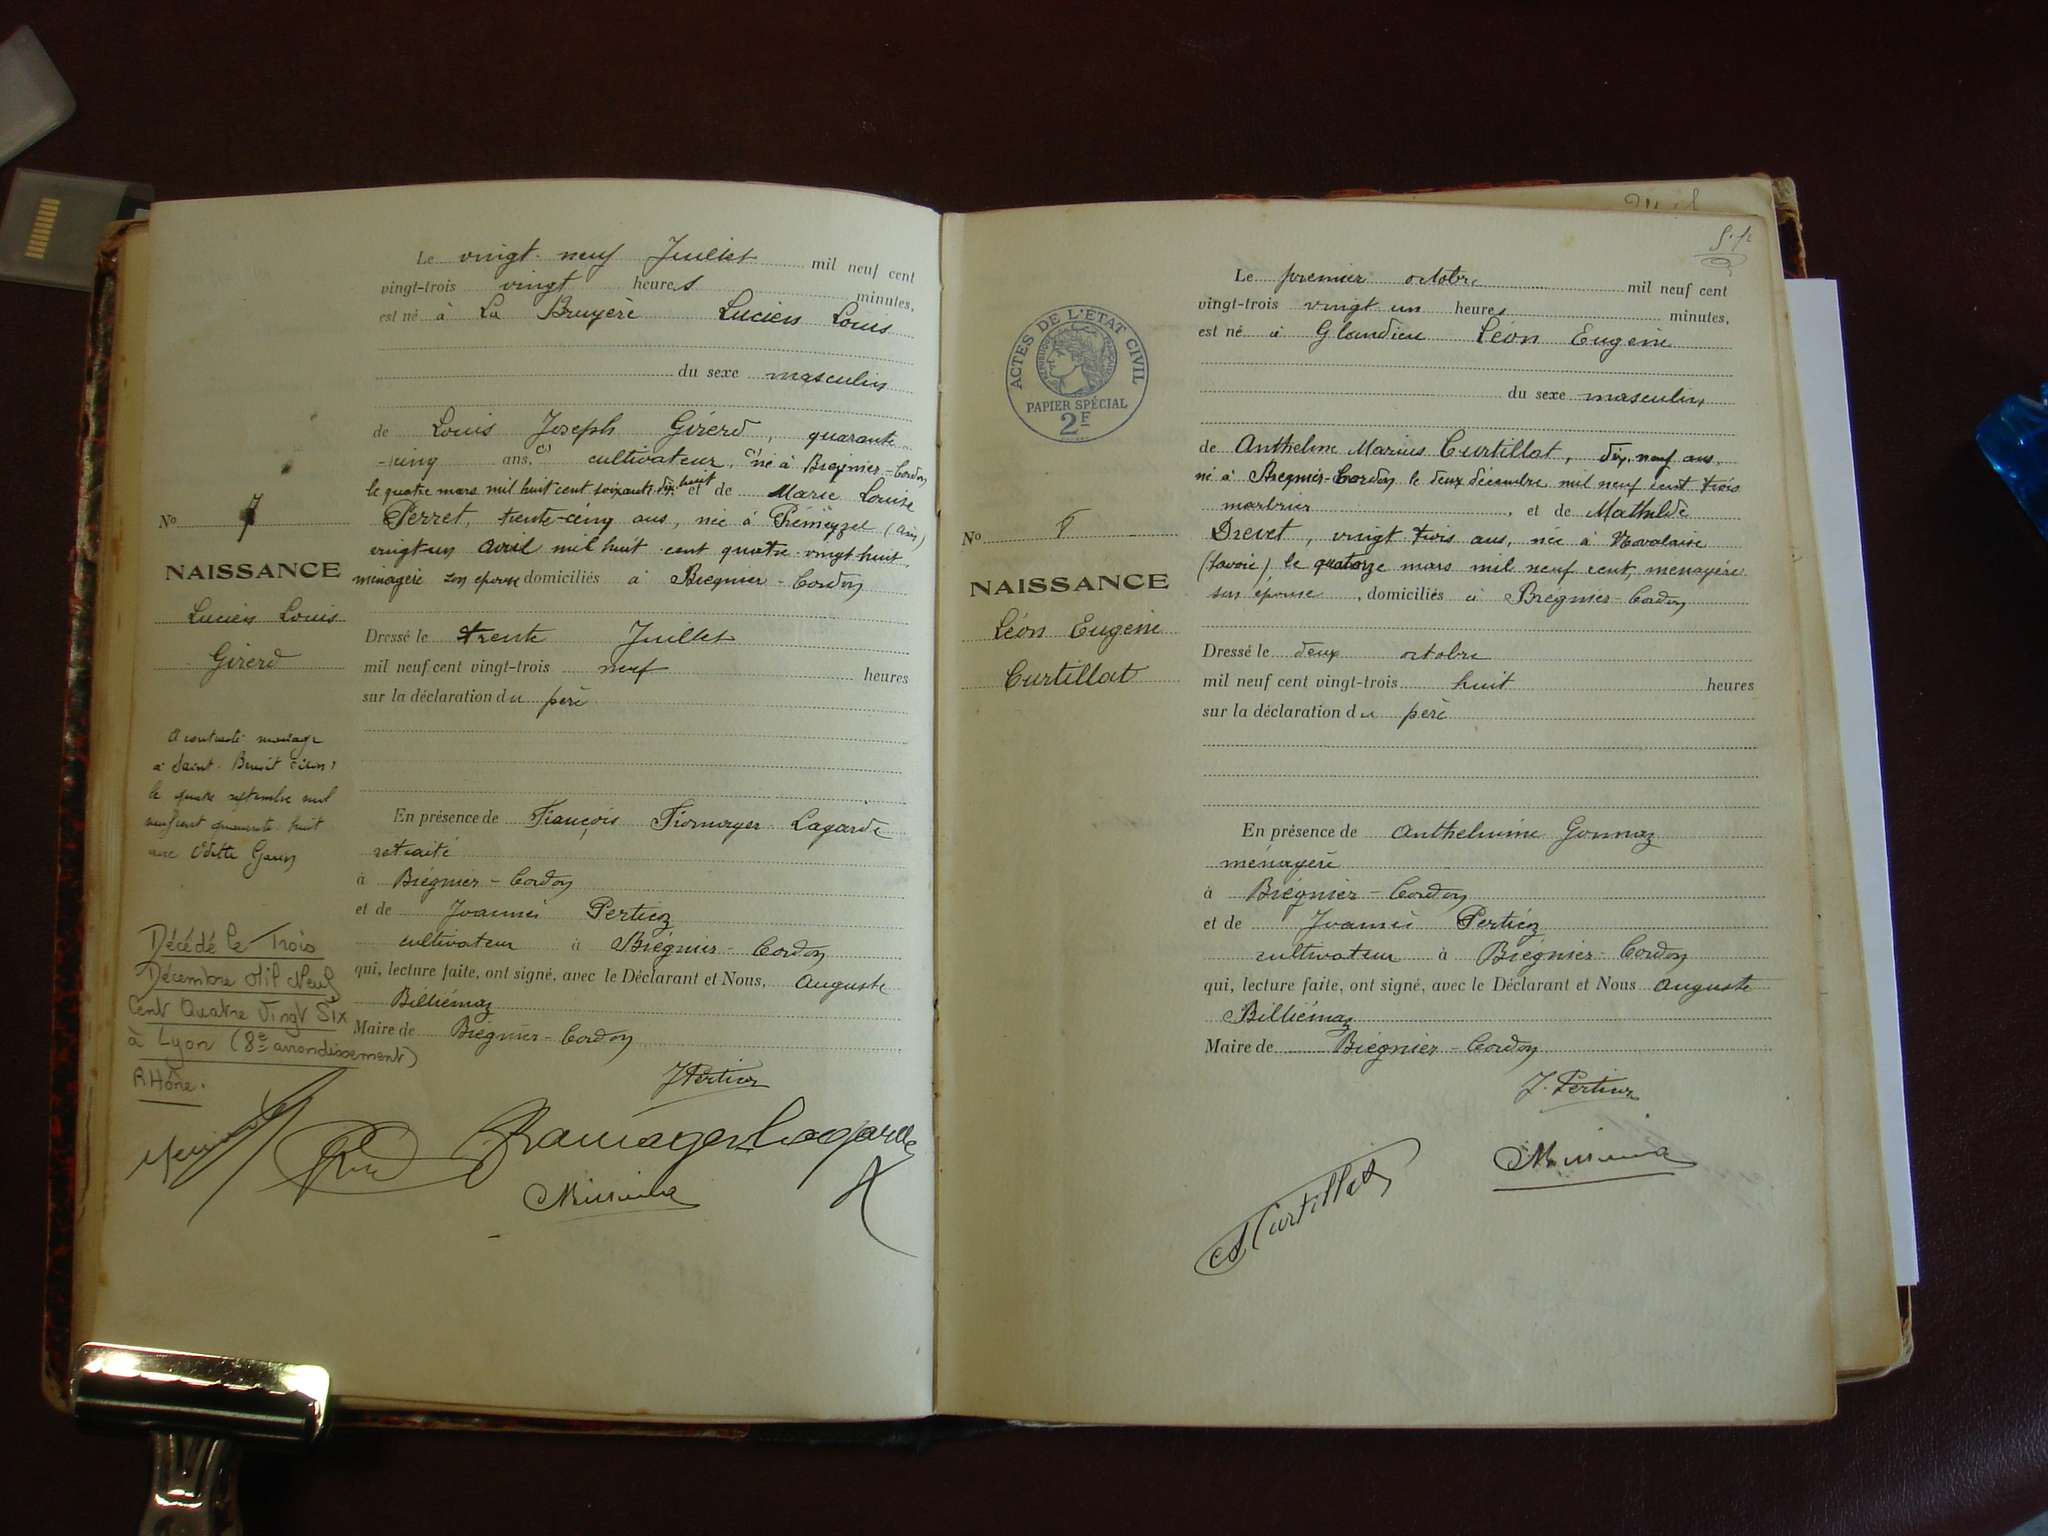 Le vingt neuf Juillet mil neuf cent
vingt-trois vingt heures minutes,
est né à La Bruyère Lucien Louis
du sexe masculin
de Louis Joseph Girerd, quarante
-cinq ans, cultivateur, né à Brégnier-Cordon
le quatre mars mil huit cent soixante dix huit et de Marie Louise
Perret, trente-cinq ans, née à Prémeyzel (Ain)
vingt un Avril mil huit cent quatre-vingt huit,
ménagère son épouse domiciliés à Brégnier-Cordon
No 7
NAISSANCE
Lucien Louis
Girerd
Dressé le trente Juillet
mil neuf cent vingt-trois neuf heures
sur la déclaration du père
A contracté mariage
à Saint-Benoit
le quatre septembre mil
neuf cent quarante-huit
avec Odette
En présence de François Lagarde
retraité
à Brégnier-Cordon
et de Joannès Perticoz
cultivateur à Brégnier-Cordon
qui, lecture faite, ont signé, avec le Déclarant et Nous, Auguste
Billiémaz
Maire de Brégnier-Cordon
Décédé le Trois
Décembre Mil Neuf
Cent Quatre Vingt Six
à Lyon (8e arrondissement)
RHône.
J Perticoz
Lagarde
Le premier octobre mil neuf cent
vingt-trois vingt un heures minutes,
est né à Glandieu Léon Eugène
du sexe masculin
de Anthelme Marius Curtillat, dix neuf ans,
né à Brégnier-Cordon le deux décembre mil neuf cent trois
marbrier, et de Mathilde
Drevet, vingt trois ans, née à Novalaise
(Savoie) le quatorze mars mil neuf cent, ménagère
son épouse, domiciliés à Brégnier-Cordon
ACTES DE L'ETAT CIVIL
PAPIER SPÉCIAL
2F
No
NAISSANCE
Léon Eugène
Curtillat
Dressé le deux octobre
mil neuf cent vingt-trois huit heures
sur la déclaration du père
En présence de Anthelmine Gonnaz
ménagère
à Brégnier-Cordon
et de Joannès Perticoz
cultivateur à Brégnier-Cordon
qui, lecture faite, ont signé, avec le Déclarant et Nous Auguste
Billiémaz
Maire de Brégnier-Cordon
J. Perticoz
Curtillat